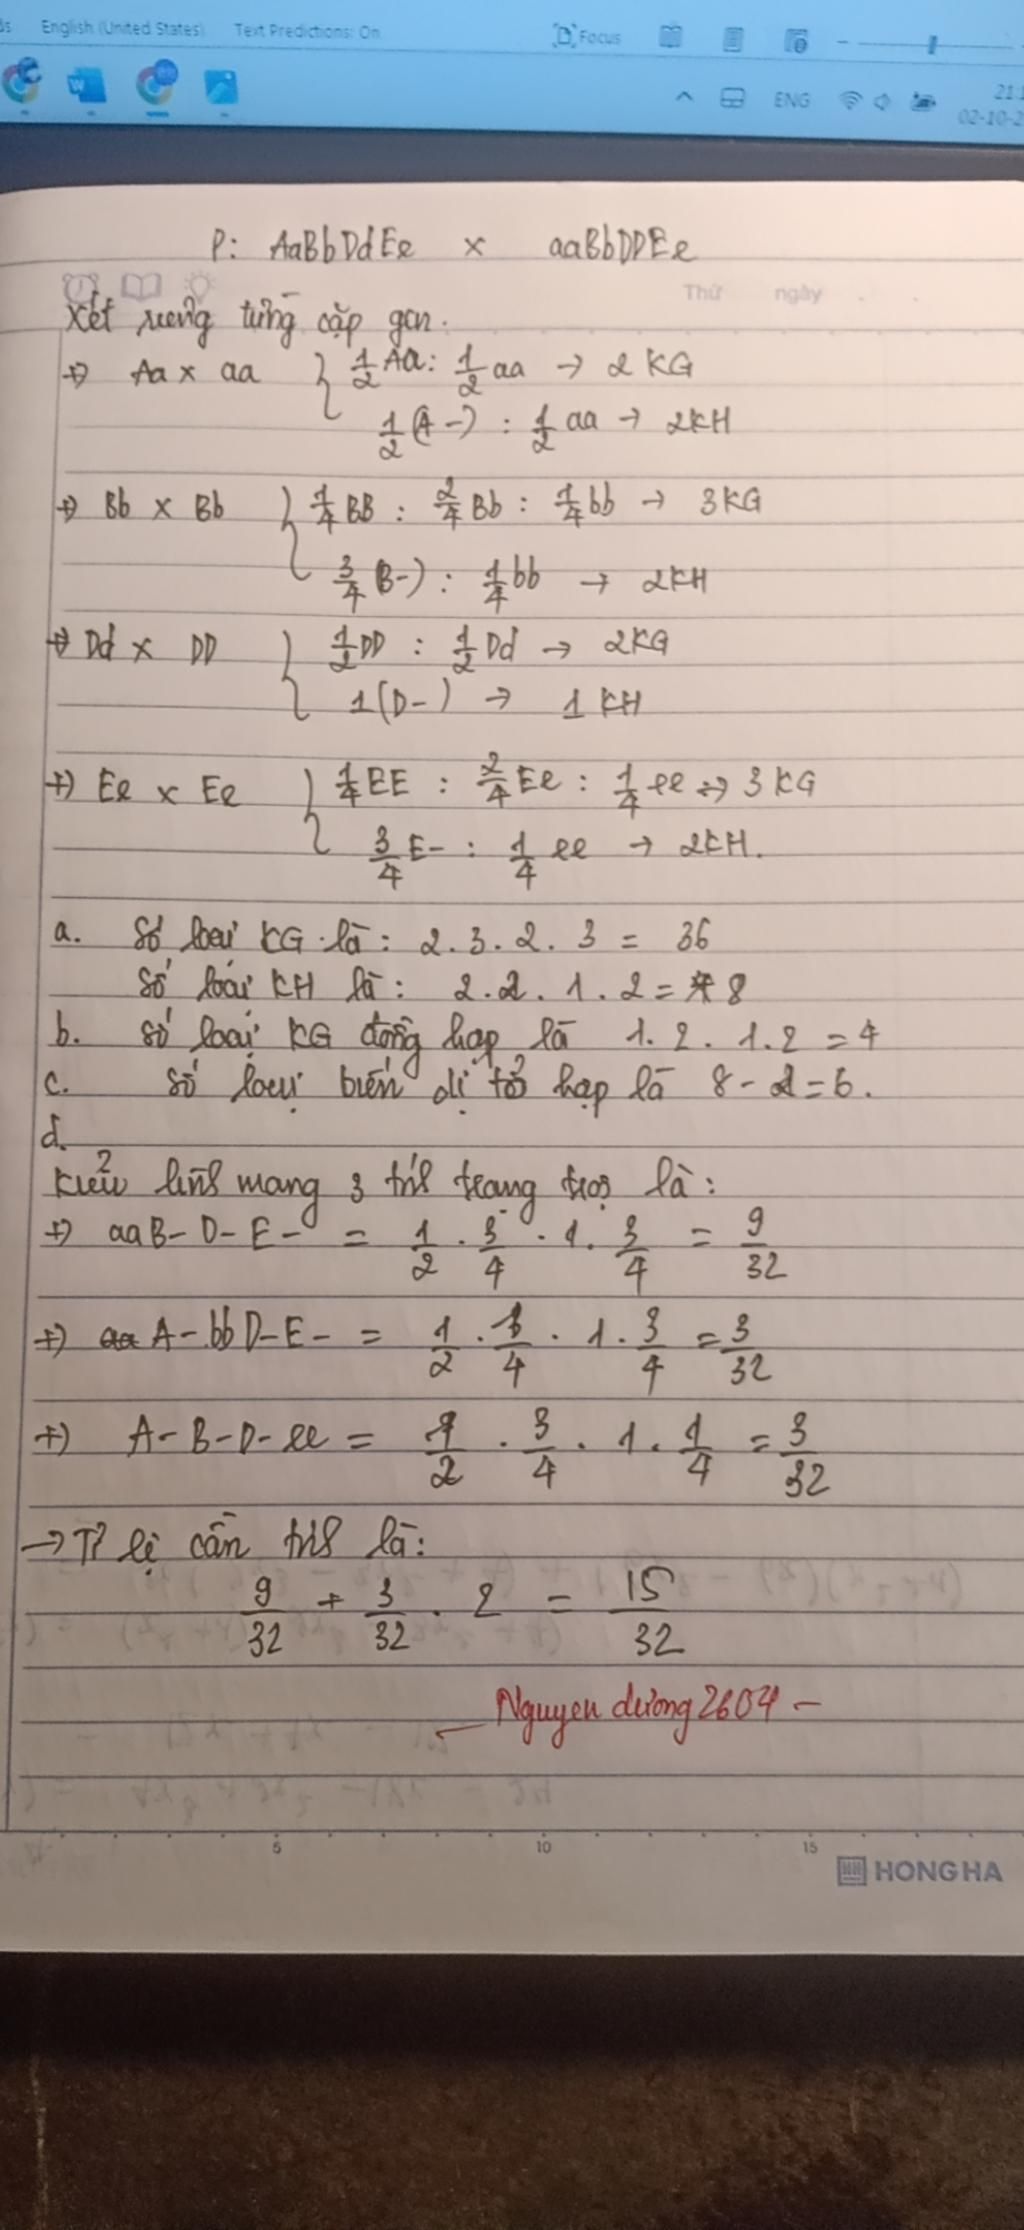 English (United States) Text Predictions: On Focus
ENG
02-10-2
P: AaBbDdEe x aaBbDDEe
Thứ ngày
Xét riêng từng cặp gen.
+) Aa x aa { 1/2 Aa : 1/2 aa → 2 KG
1/2 (A-) : 1/2 aa → 2KH
+) Bb x Bb { 1/4 BB : 2/4 Bb : 1/4 bb → 3KG
3/4 (B-) : 1/4 bb → 2KH
+) Dd x DD { 1/2 DD : 1/2 Dd → 2KG
1(D-) → 1 KH
+) Ee x Ee { 1/4 EE : 2/4 Ee : 1/4 ee → 3 KG
3/4 E- : 1/4 ee → 2KH.
a. Số loại KG là : 2.3.2.3 = 36
Số loại KH là : 2.2.1.2 = 8
b. Số loại KG đồng hợp là 1.2.1.2 = 4
c. Số loại biến dị tổ hợp là 8 - 2 = 6.
d.
Kiểu hình mang 3 tính trạng trội là :
+) aaB-D-E- = 1/2 . 3/4 . 1 . 3/4 = 9/32
+) A-bbD-E- = 1/2 . 1/4 . 1 . 3/4 = 3/32
+) A-B-D-ee = 1/2 . 3/4 . 1 . 1/4 = 3/32
→ Tỉ lệ cần tính là :
9/32 + 3/32 . 2 = 15/32
— Nguyen dương 2604 —
5 10 15
HONG HA